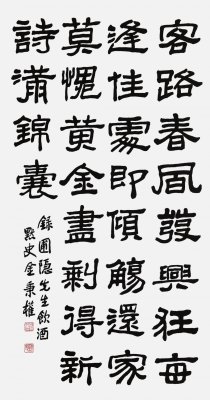 客路春風發興狂每
逢佳處即傾觴還家
莫愧黃金盡剩得新
詩滿錦囊
錄圃隱先生飲酒
史金秉權